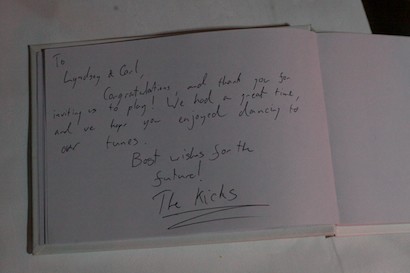 To
Lyndsey & Carl,
Congratulations, and thank you for
inviting us to play! We had a great time,
and we hope you enjoyed dancing to
our tunes.
Best wishes for the
future!
The Kicks